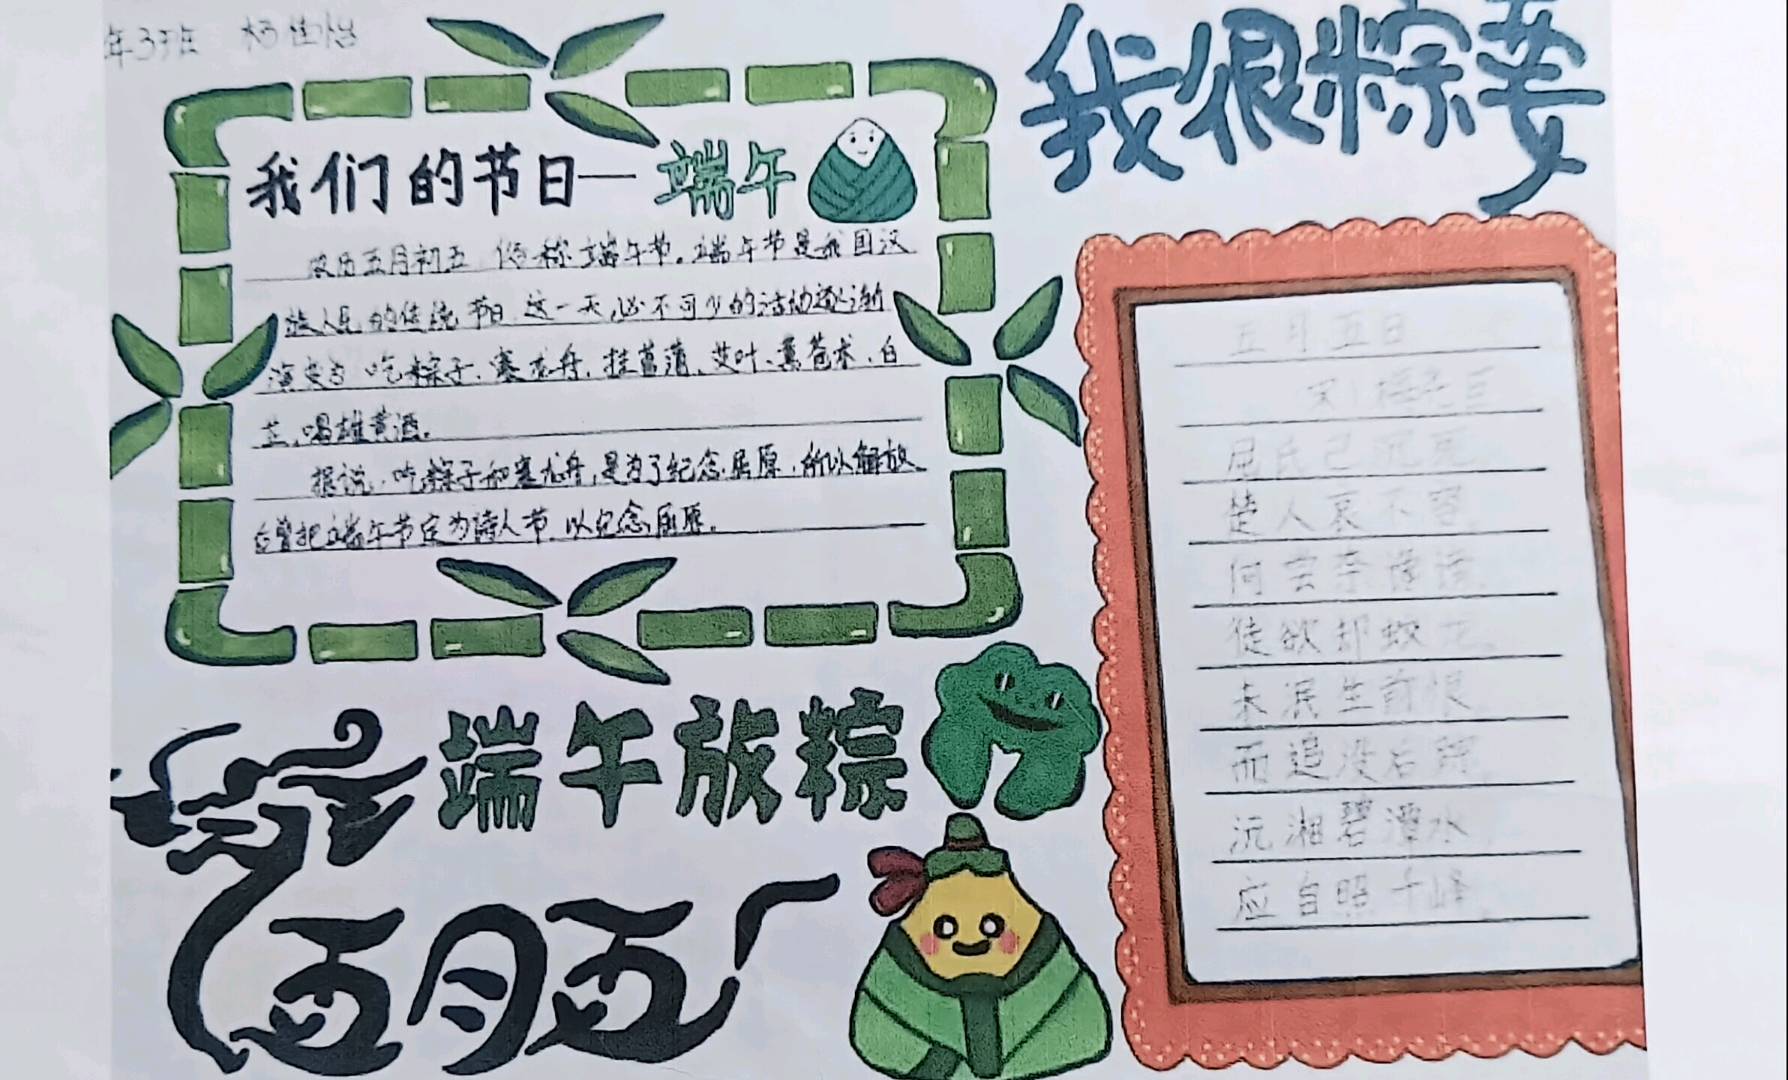 年3班 杨佳怡
我很粽要
我们的节日—端午
农历五月初五 俗称端午节。端午节是我国汉
族人民的传统节日.这一天必不可少的活动逐渐
演变为吃粽子、赛龙舟、挂菖蒲、艾叶、熏苍术、白
芷、喝雄黄酒。
据说,吃粽子和赛龙舟,是为了纪念屈原,所以解放
后曾把端午节定为诗人节,以纪念屈原。
五月五日
屈氏已沉死
楚人哀不容
何尝奈谗谤
徒欲却蛟龙
未泯生前恨
而追没后踪
沅湘碧潭水
应自照千峰
端午放粽
五月五